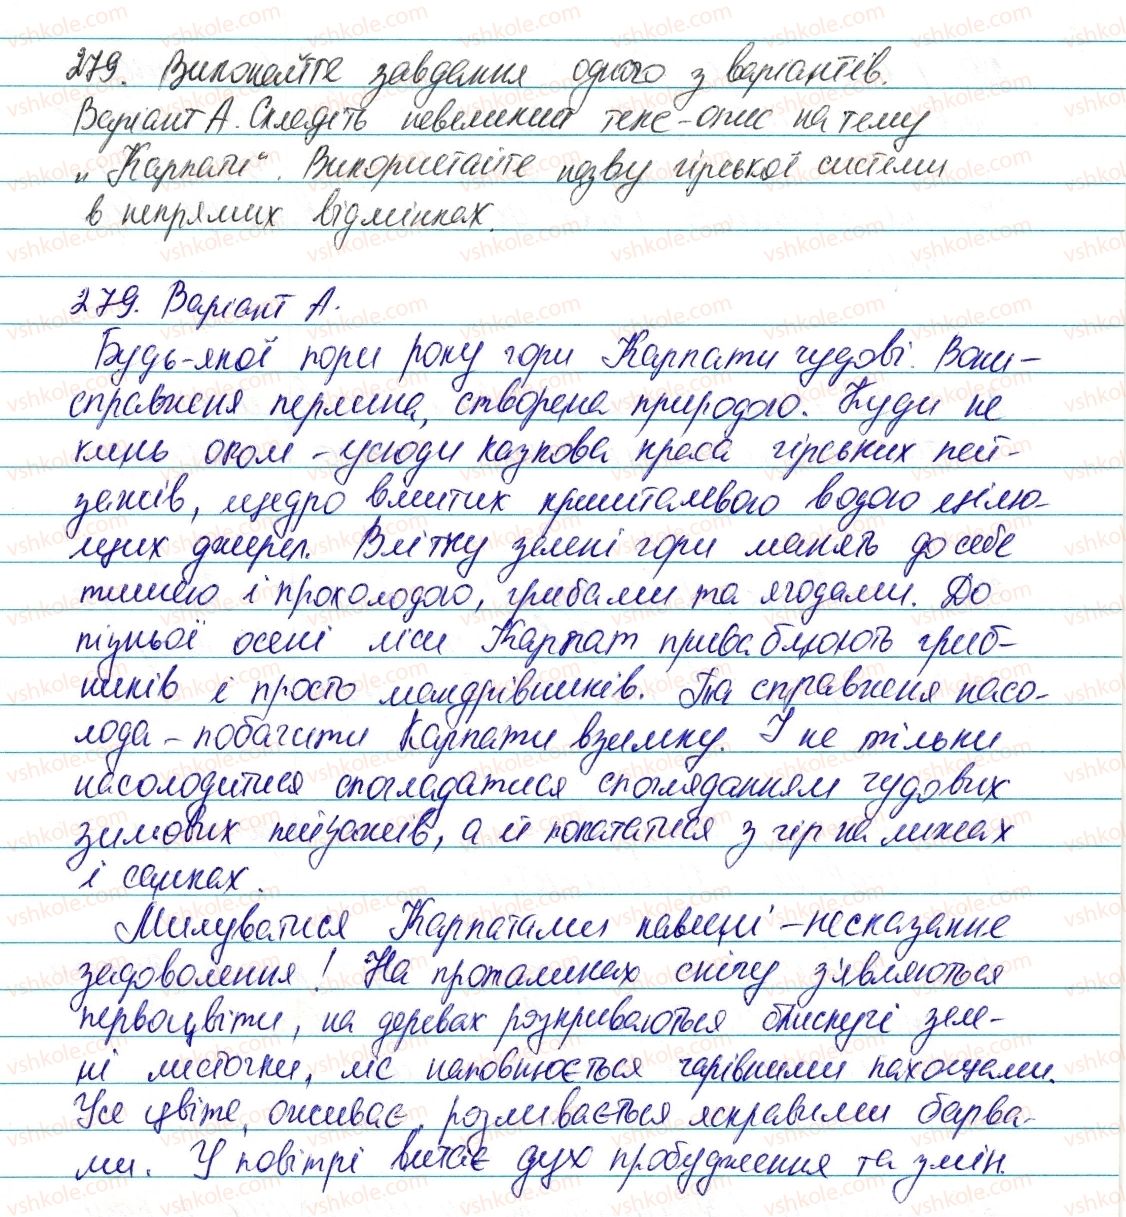 279. Виконайте завдання одного з варіантів.
Варіант А. Складіть невеликий текс-опис на тему
„Карпати“. Використайте назву гірської системи
в непрямих відмінках.
279. Варіант А.
Будь-якої пори року гори Карпати чудові. Вони –
справжня перлина, створена природою. Куди не
кинь оком – усюди казкова краса гірських пей-
зажів, щедро вмитих кришталевою водою цілю-
щих джерел. Влітку зелені гори манять до себе
тишею і прохолодою, грибами та ягодами. До
пізньої осені ліси Карпат приваблюють гриб-
ників і просто мандрівників. Та справжня насо-
лода – побачити Карпати взимку. І не тільки
насолодитися спогладатися спогляданням чудових
зимових пейзажів, а й покататися з гір на лижах
і санках.
Милуватися Карпатами навесні – несказанне
задоволення! На проталинах снігу з'являються
первоцвіти, на деревах розкриваються блискучі зеле-
ні листочки, ліс наповнюється чарівними пахощами.
Усе цвіте, оживає, розливається яскравими барва-
ми. У повітрі витає дух пробудження та змін.